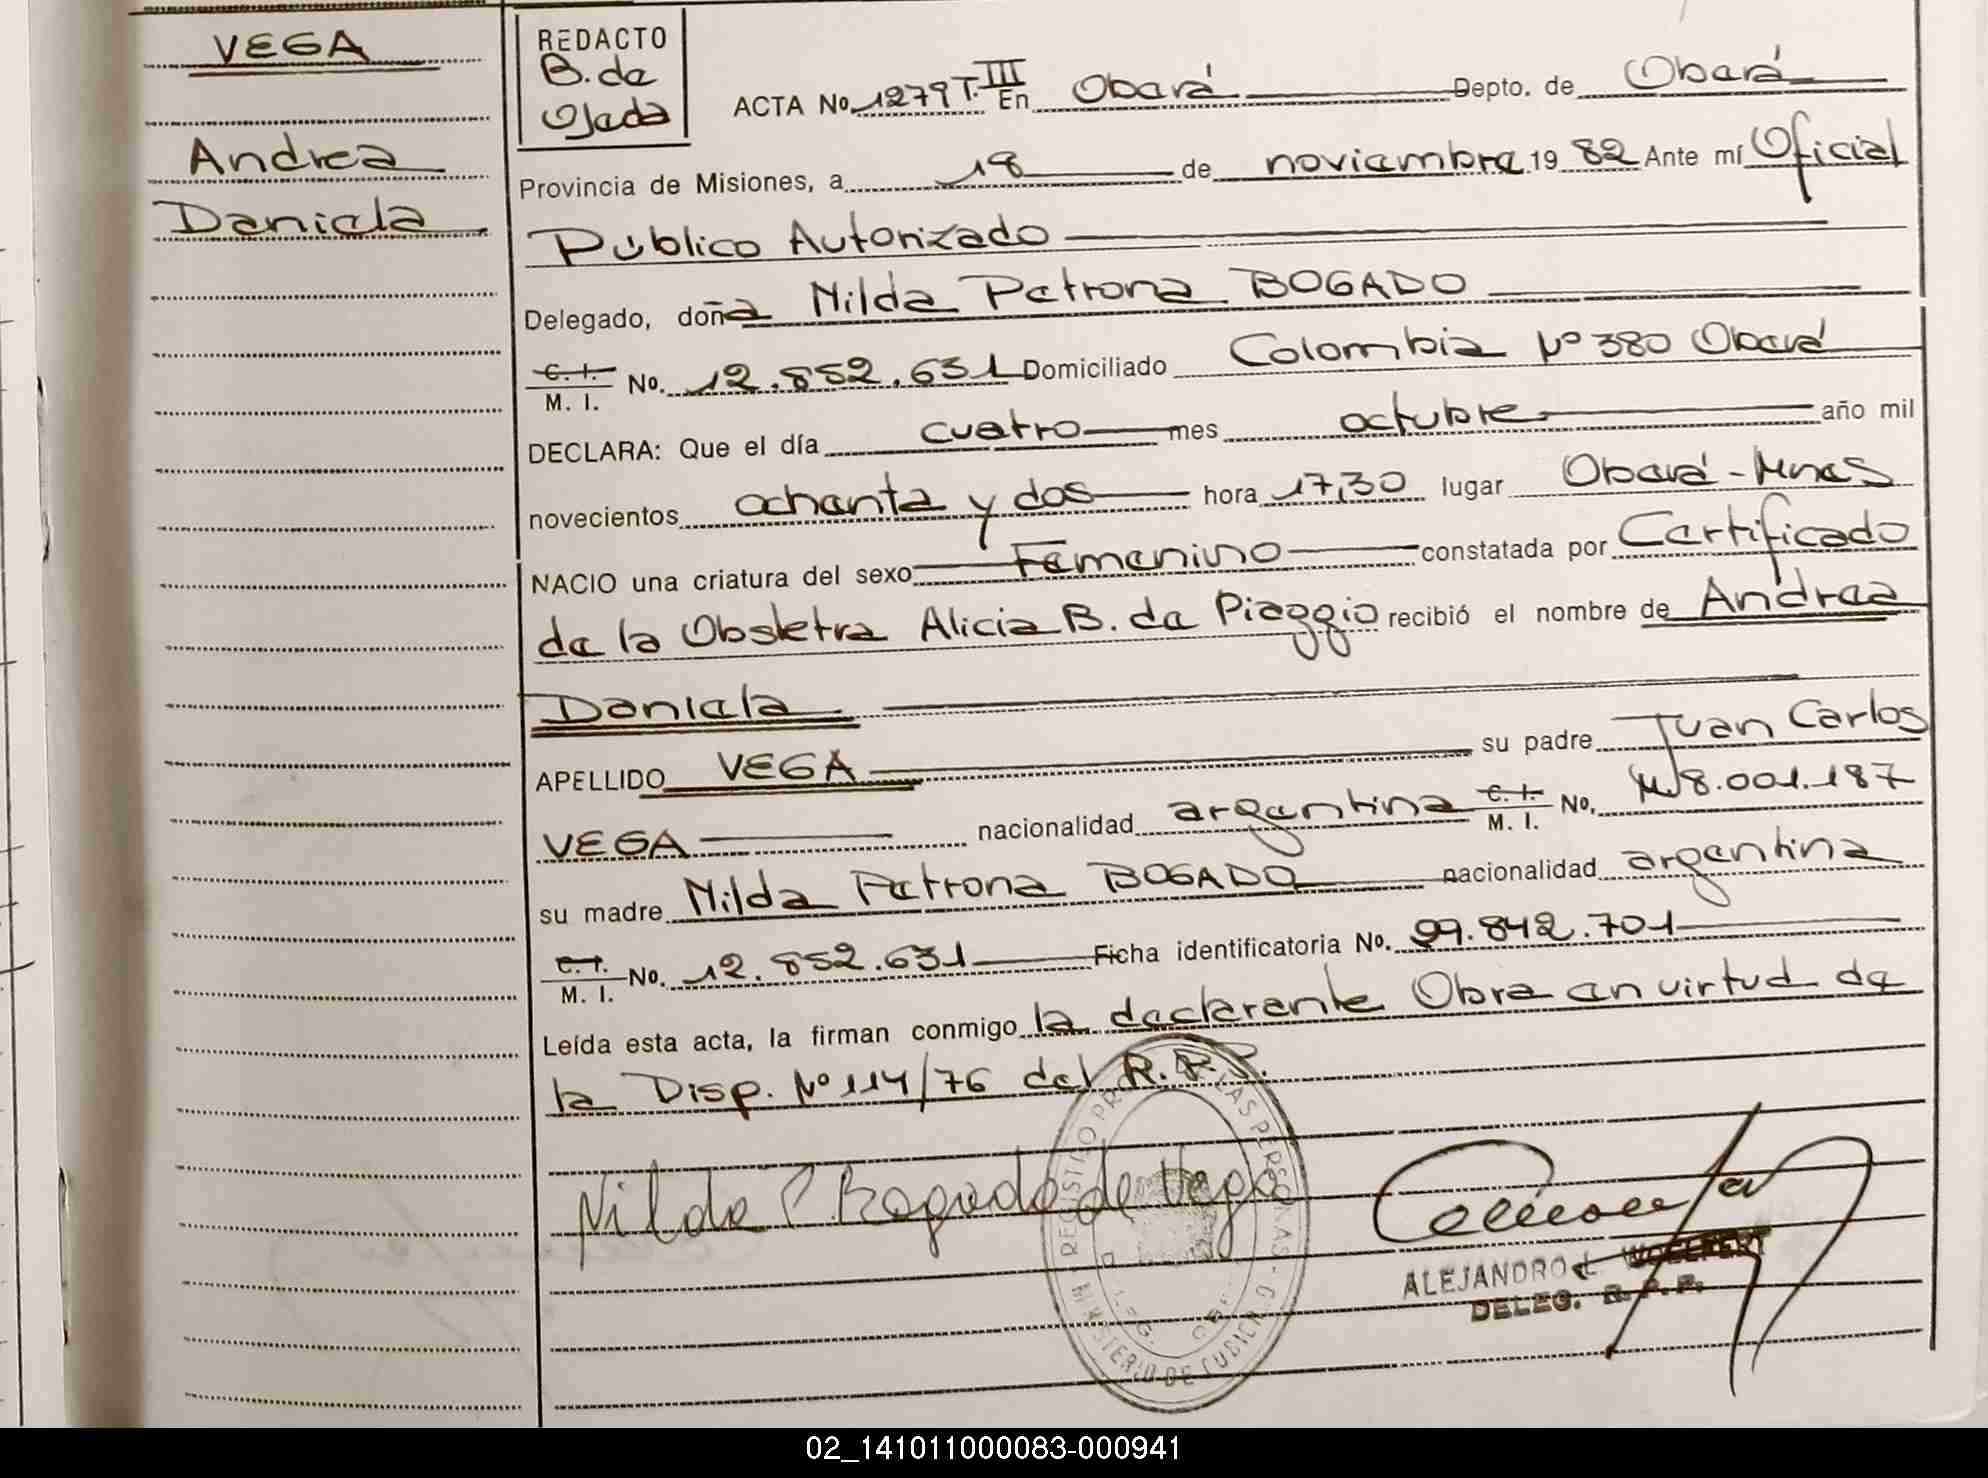 VEGA
Andrea
Daniela
REDACTO
B. de
Ojeda
ACTA No 1279 T. III En Oberá Depto. de Oberá
Provincia de Misiones, a 18 de noviembre 19 82 Ante mí Oficial
Público Autorizado
Delegado, doña Nilda Petrona BOGADO
C. I. M. I. No. 12.852.631 Domiciliado Colombia Nº 380 Oberá
DECLARA: Que el día cuatro mes octubre año mil
novecientos ochenta y dos hora 17,30 lugar Oberá - Mnes
NACIO una criatura del sexo Femenino constatada por Certificado
de la Obstetra Alicia B. de Piaggio recibió el nombre de Andrea
Daniela
APELLIDO VEGA su padre Juan Carlos
VEGA nacionalidad argentina C. I. M. I. No. M 8.001.187
su madre Nilda Petrona BOGADO nacionalidad argentina
C. I. M. I. No. 12.852.631 Ficha identificatoria No. 99.842.701
Leída esta acta, la firman conmigo la declarante Obra en virtud de
la Disp. Nº 114/76 del R.P.P.
Nilda P. Bogado de Vega
REGISTRO LAS PERSONAS
MINISTERIO DE
ALEJANDRO L. WOELFERT
DELEG. R. P. P.
02_141011000083-000941